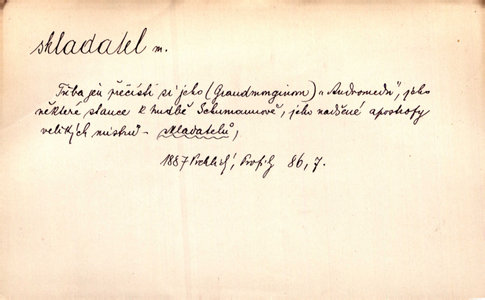 skladatel m.
Třeba jen přečísti si jeho (Grandmonginovu) „Andromedu", jeho
některé stance k hudbě Schumannově, jeho nadšené apostrofy
velikých mistrů – skladatelů,
1887 Vrchlický, Profily 86, 7.